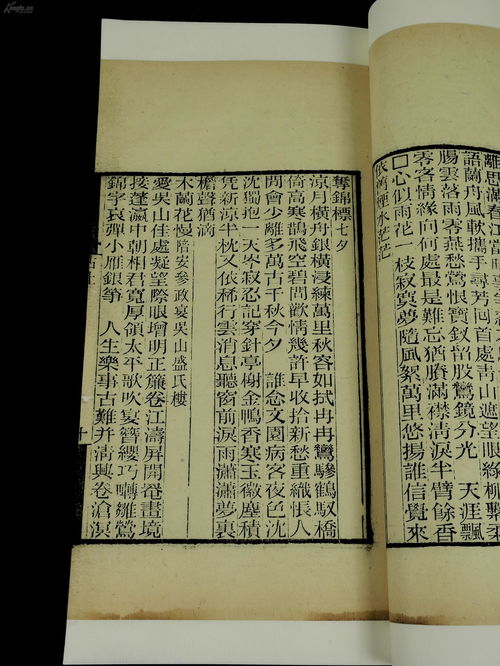 離思滿春江當時
語蘭舟風軟攜手尋芳山遮望眼綠
腸雲落雨零燕愁鶯恨寶釵留股鸞鏡分光 天涯飄
零客情緣向何處最是難忘猶賸滿襟淸淚半臂餘香
□心似雨花一枝寂寞夢隨風絮萬里悠揚誰信覺來
依舊煙水茫茫
奪錦標七夕
涼月橫舟銀橫浸練萬里秋容如拭冉冉鸞驂鶴馭橋
倚高寒鵲飛空碧問歡情幾許早收拾新愁重織恨人
間會少離多萬古千秋今夕 誰念文園病客夜色沈
沈獨抱一天岑寂忍記穿針亭榭金鴨香寒玉徽塵積
凭新涼半枕又依稀行雲消息聽窗前淚雨瀟瀟夢裏
檐聲猶滴
木蘭花慢陪安參政宴吳山盛氏樓
愛吳山佳處凝望際眼增明正簾卷江濤屏開罨畫境
接蓬瀛中朝相君寬厚領太平歌吹宴簪纓巧囀雛鶯
錦字哀彈小雁銀箏 人生樂事古難并淸興卷滄溟